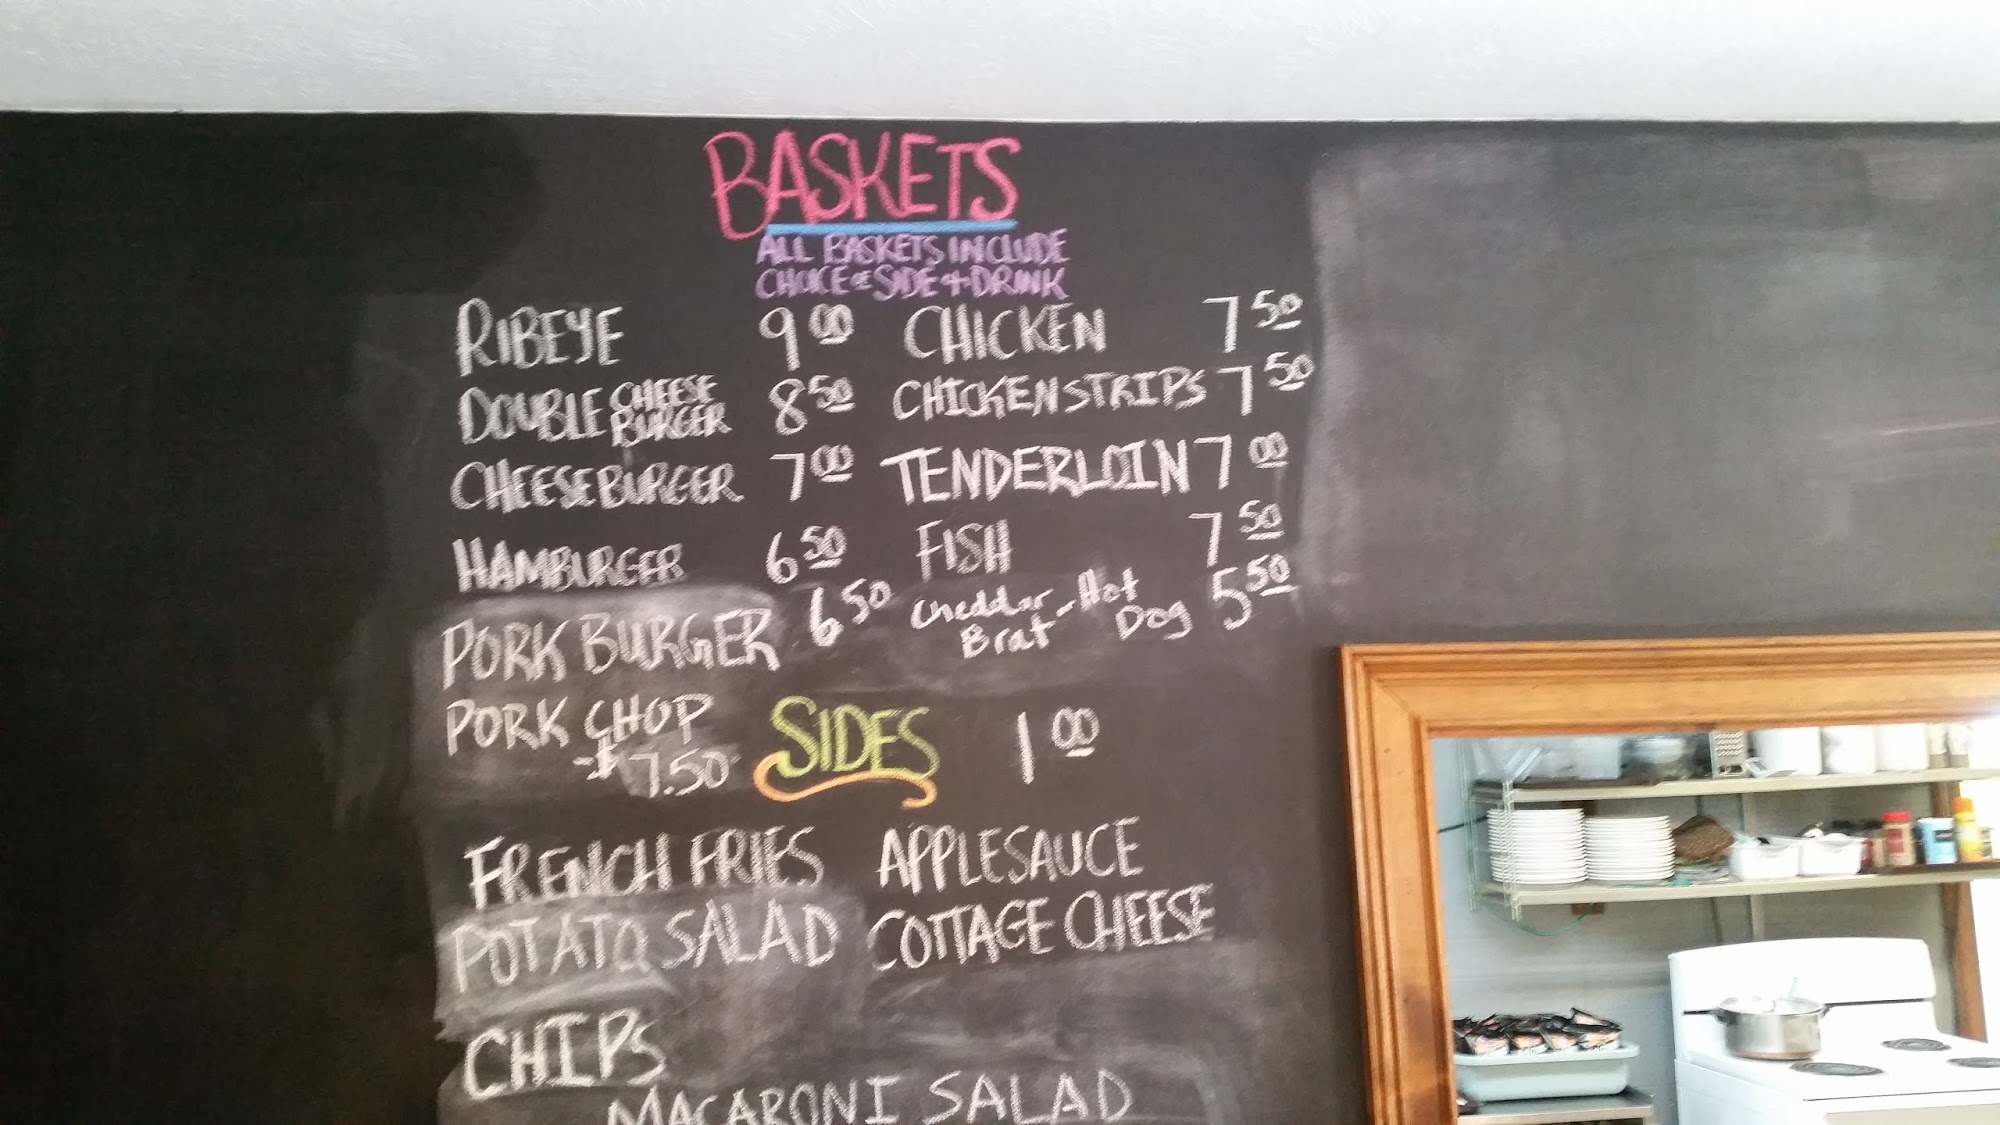 BASKETS
ALL BASKETS INCLUDE
CHOICE OF SIDE + DRINK
RIBEYE 9 00 CHICKEN 7 50
DOUBLE CHEESE BURGER 8 50 CHICKEN STRIPS 7 50
CHEESEBURGER 7 00 TENDERLOIN 7 00
HAMBURGER 6 50 FISH 7 50
PORK BURGER 6 50 Cheddar Brat - Hot Dog 5 50
PORK CHOP
-$7.50
SIDES 1 00
FRENCH FRIES APPLESAUCE
POTATO SALAD COTTAGE CHEESE
CHIPS
MACARONI SALAD